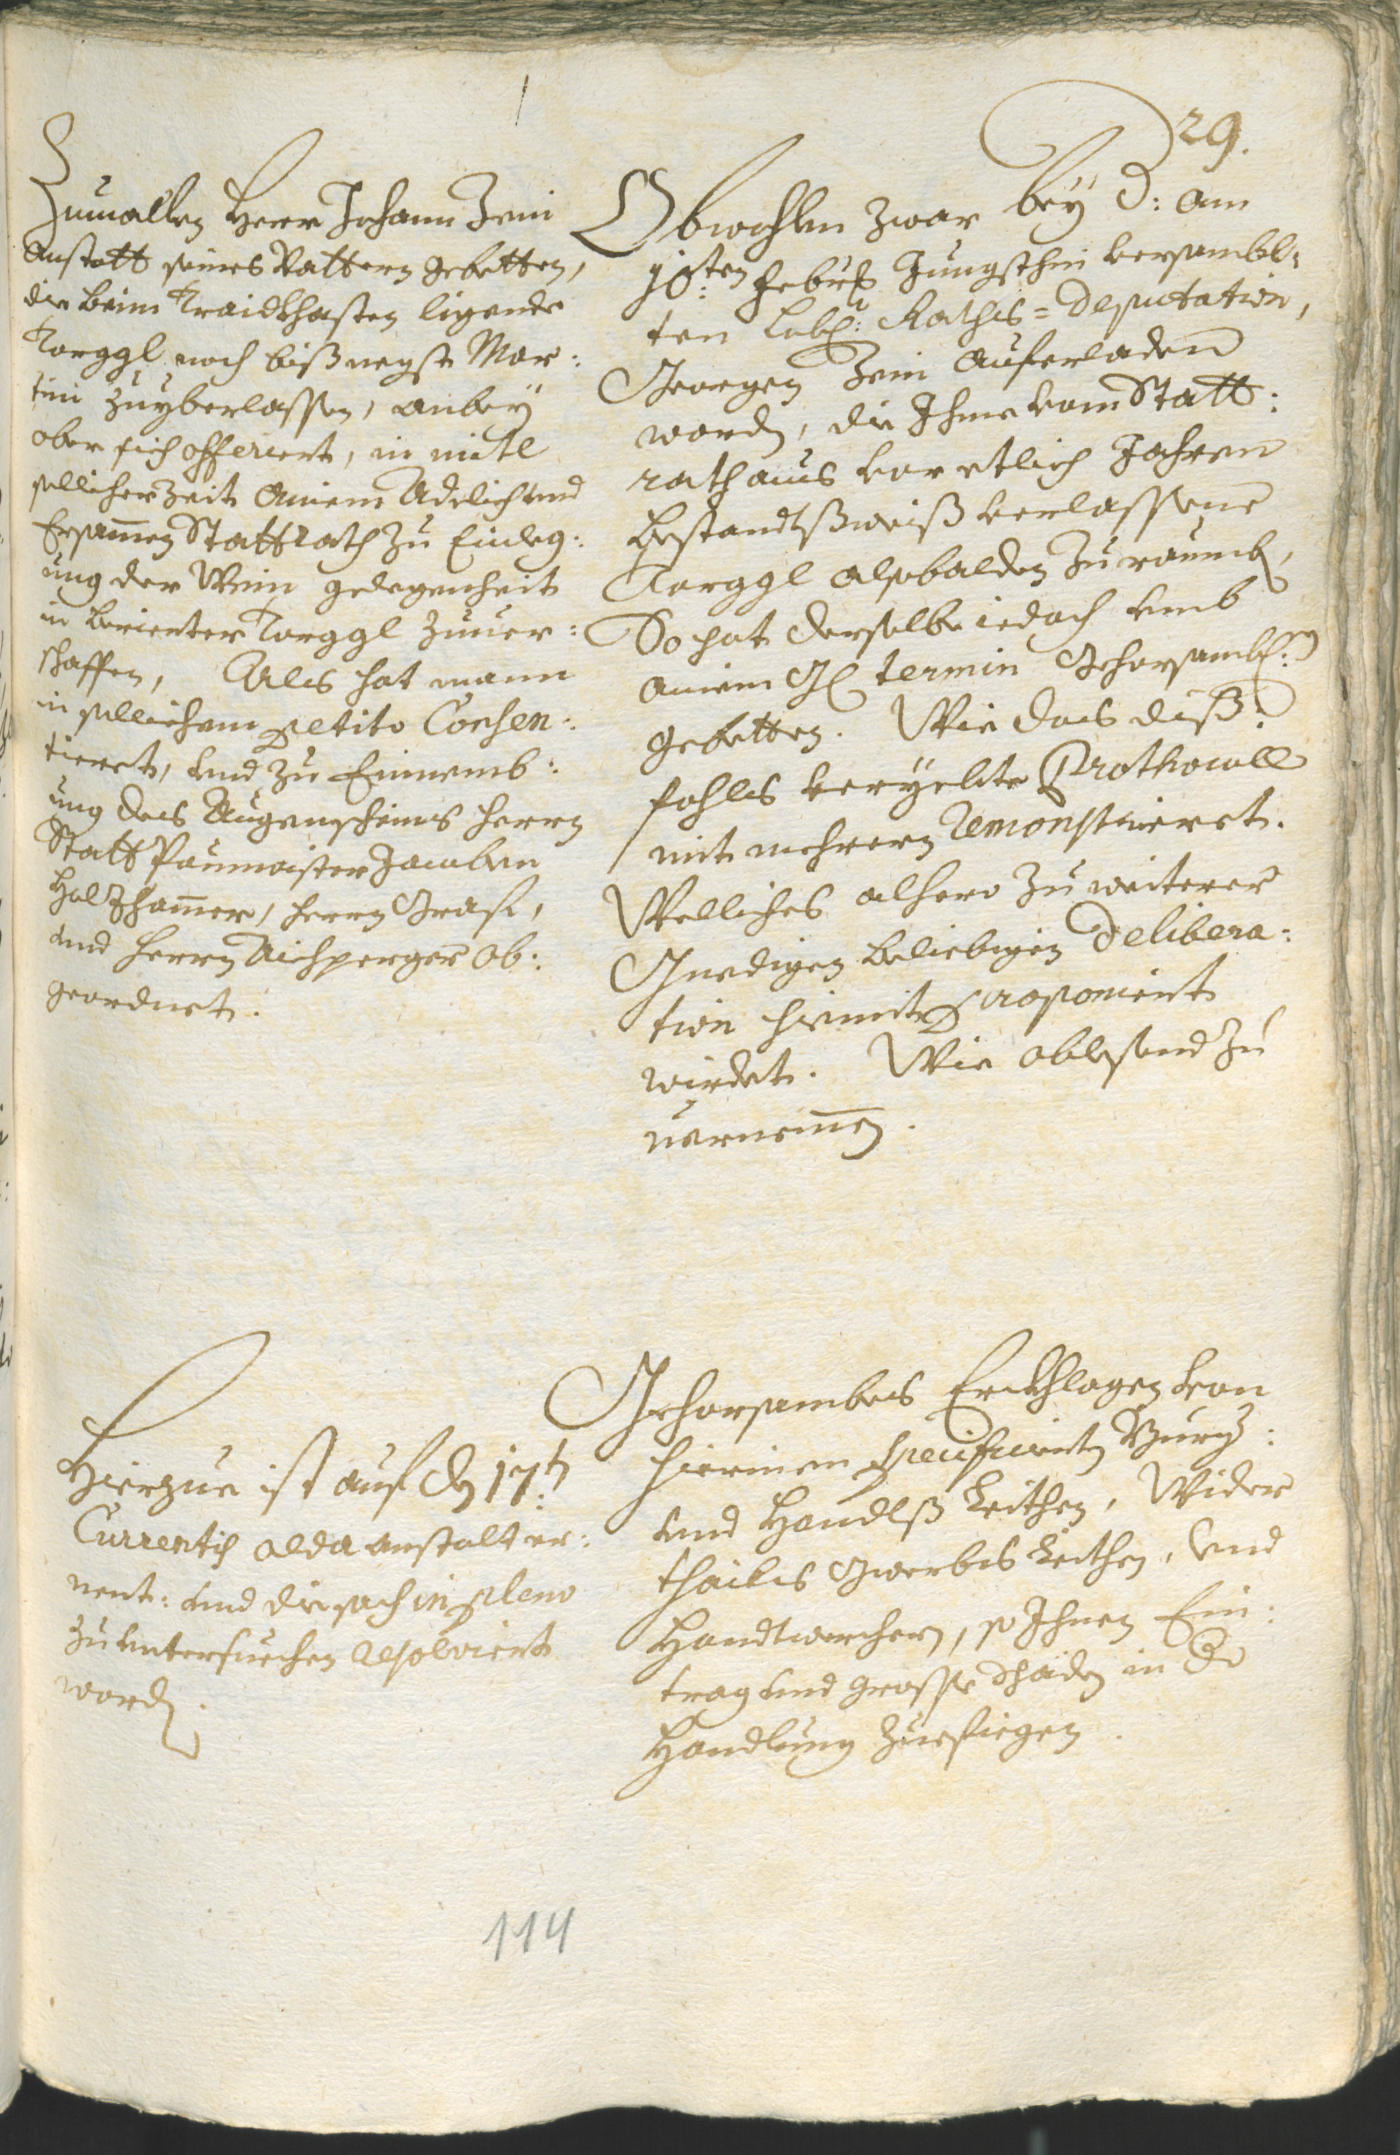 29.
Zumallen Herr Johann Zeni
Anstatt seines Vattern gebetten,
die beim Traidtkhasten ligende
Torggl noch biß negst Mar:
tini zuyberlassen, anbey
aber sich offeriert, in mitl
sellicher Zeit Ainem Adelich und
Ersamen Stattrath zu Einleg:
ung der Wein gelegenheit
in berierter Torggl zuuer:
schaffen, Als hat mann
in sellichem petito Consen:
tieret, und zu Einnemb:
ung des Augenscheins herrn
Statt Paumaister Jacoben
Holzhamer, herrn Graff,
und herrn Aichperger ab:
geordnet.
Obwohlen zwar bey d: am
10ten Febr: Jungsthin versambl:
ten Löbl: Raths=Deputation,
Georgen Zeni auferladen
worden, die Ihme vom Statt:
rath aus vor etlich Jahren
bestandtßweiß verlassene
Torggl alsobalden zuraumben,
So hat derselbe iedoch umb
ainem termin Gehorsambl:
gebetten. Wie das diß:
fahls veryebte Prothocoll
mit mehrern remonstrieret.
Welliches alhero zu weiterer
Gnedigen beliebigen delibera:
tion hiemit proponiert
wirdet. Wie ablesend zu
uernemen.
Hierzue ist auf den 17ten
Currentis alda anstalt er:
nent: und die sach in pleno
zu untersuechen resolviert
worden.
Gehorsambes Erckhlagen von
hierinen specificierten Burg:
und Handlß Leithen, Wider
thailes Gwerbs Leithen, und
Handtwerchern, so Ihnen Ein:
trag und grosse schäden in der
Handlung zuefiegen.
114